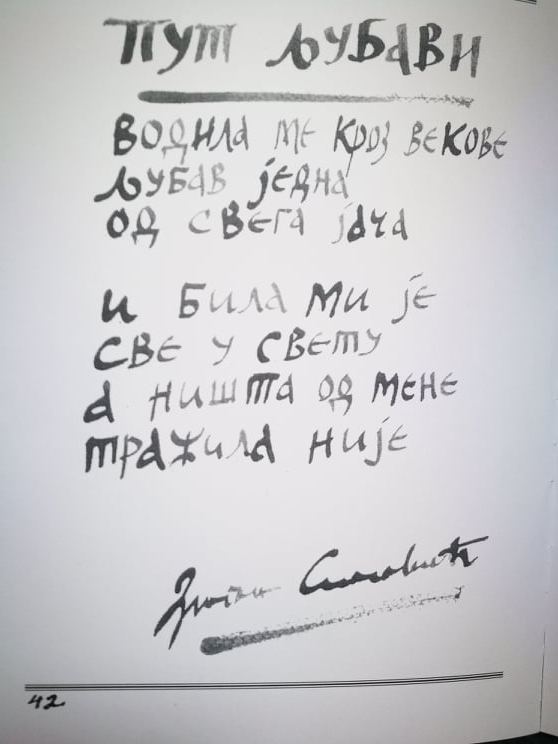 ПУТ ЉУБАВИ
ВОДИЛА МЕ КРОЗ ВЕКОВЕ
ЉУБАВ ЈЕДНА
ОД СВЕГА ЈАЧА
И БИЛА МИ ЈЕ
СВЕ У СВЕТУ
А НИШТА ОД МЕНЕ
ТРАЖИЛА НИЈЕ
42